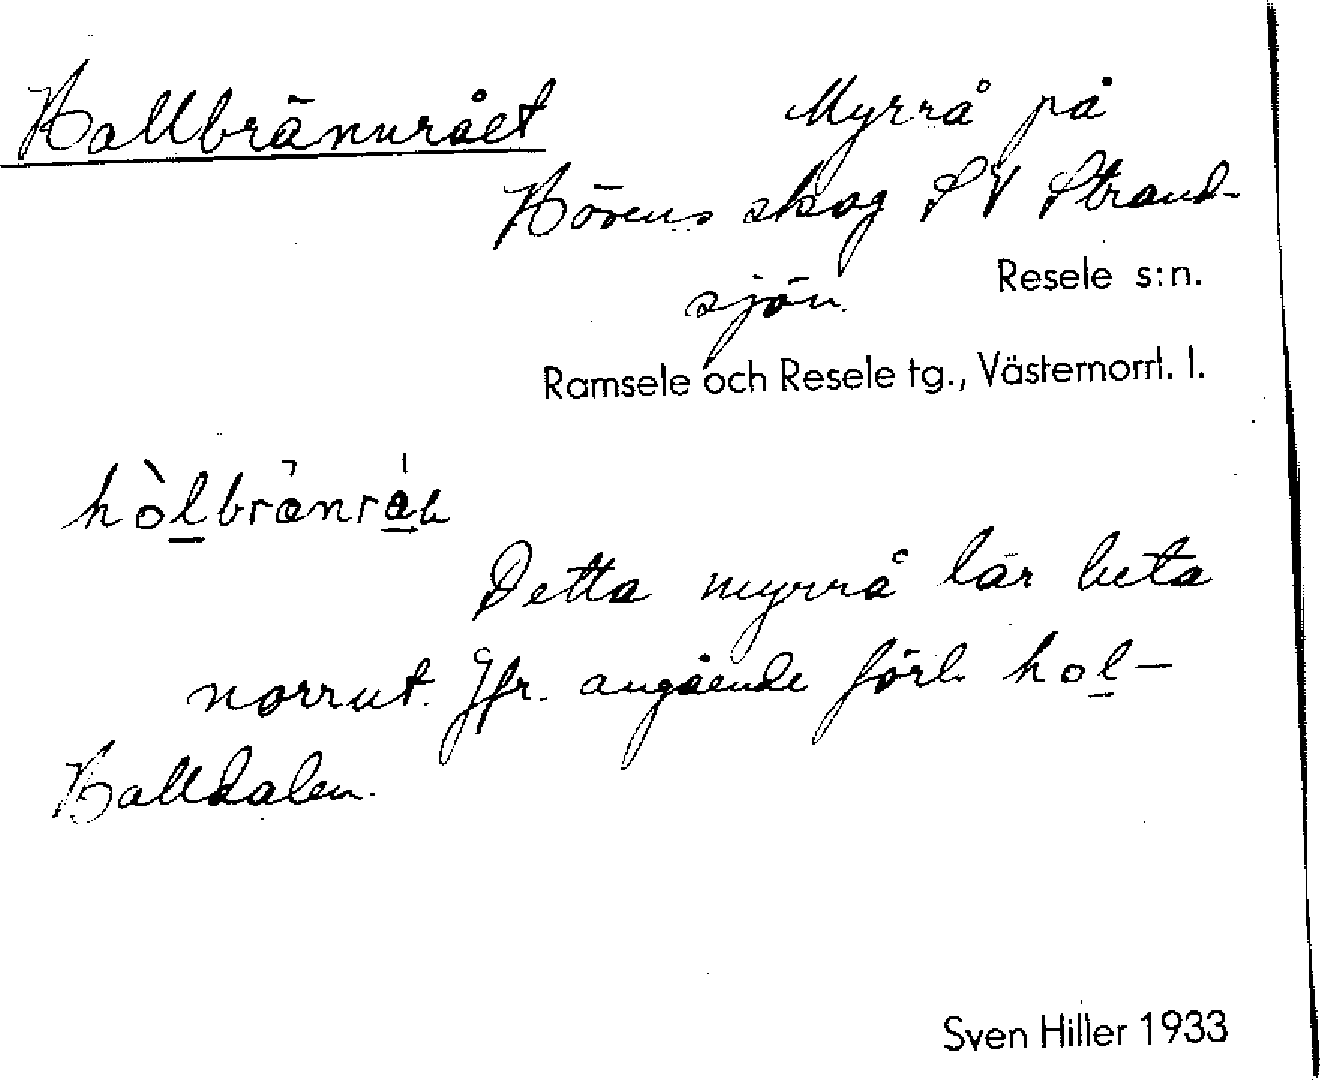 Hallbrännrået
Myrrå på
Hövens skog SV Strand-
sjön.
Resele s:n.
Ramsele och Resele tg., Västernorrl. l.
hòlbrä̀nrá
Detta myrrå lär beta
norrut. Jfr. angående förl. hol-
Halldalen.
Sven Hiller 1933